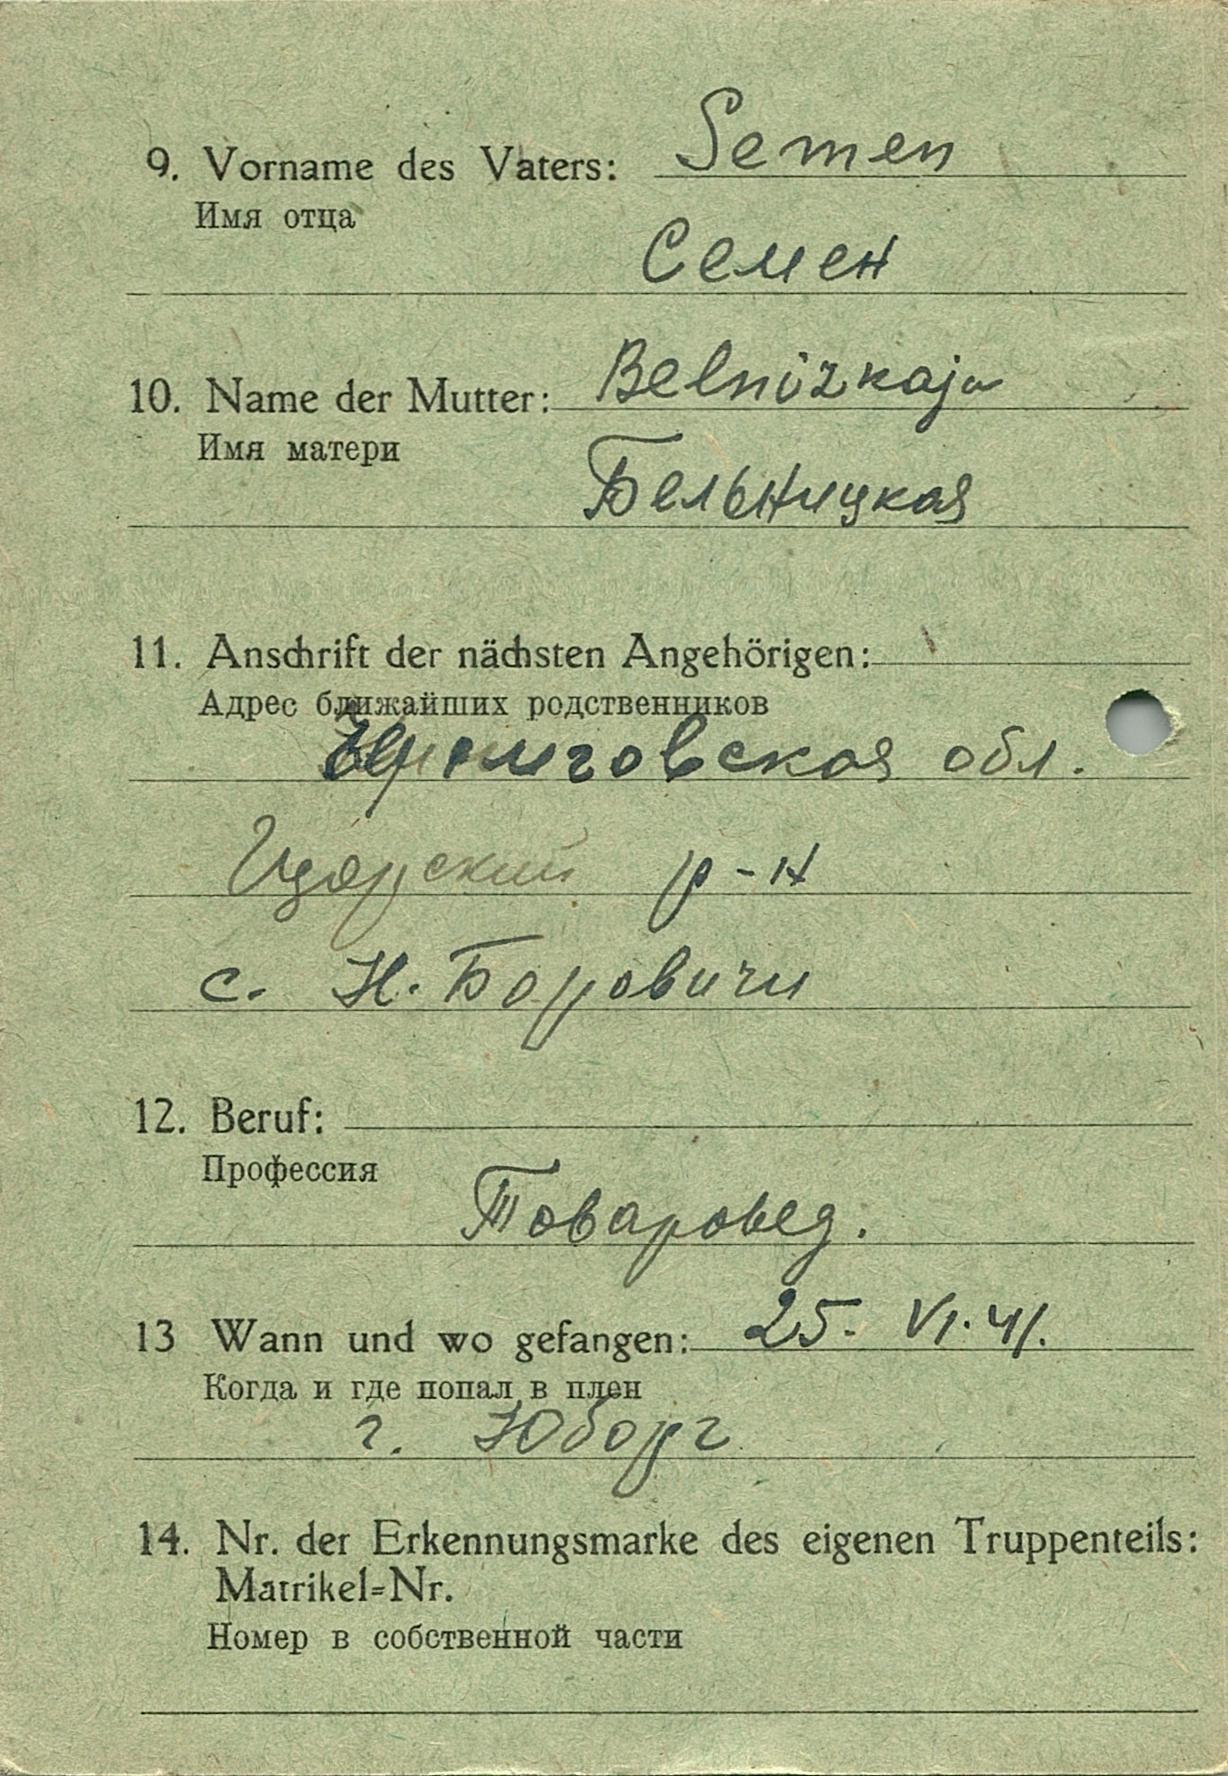 9. Vorname des Vaters: Semen
Имя отца
Семен
10. Name der Mutter: Belnizkaja
Имя матери
Бельницкая
11. Anschrift der nächsten Angehörigen:
Адрес ближайших родственников
обл.
р-н
с. Н. Боровичи
12. Beruf:
Профессия
Товаровед.
13 Wann und wo gefangen: 25. VI. 41.
Когда и где попал в плен
г. Юборг
14. Nr. der Erkennungsmarke des eigenen Truppenteils:
Matrikel=Nr.
Номер в собственной части